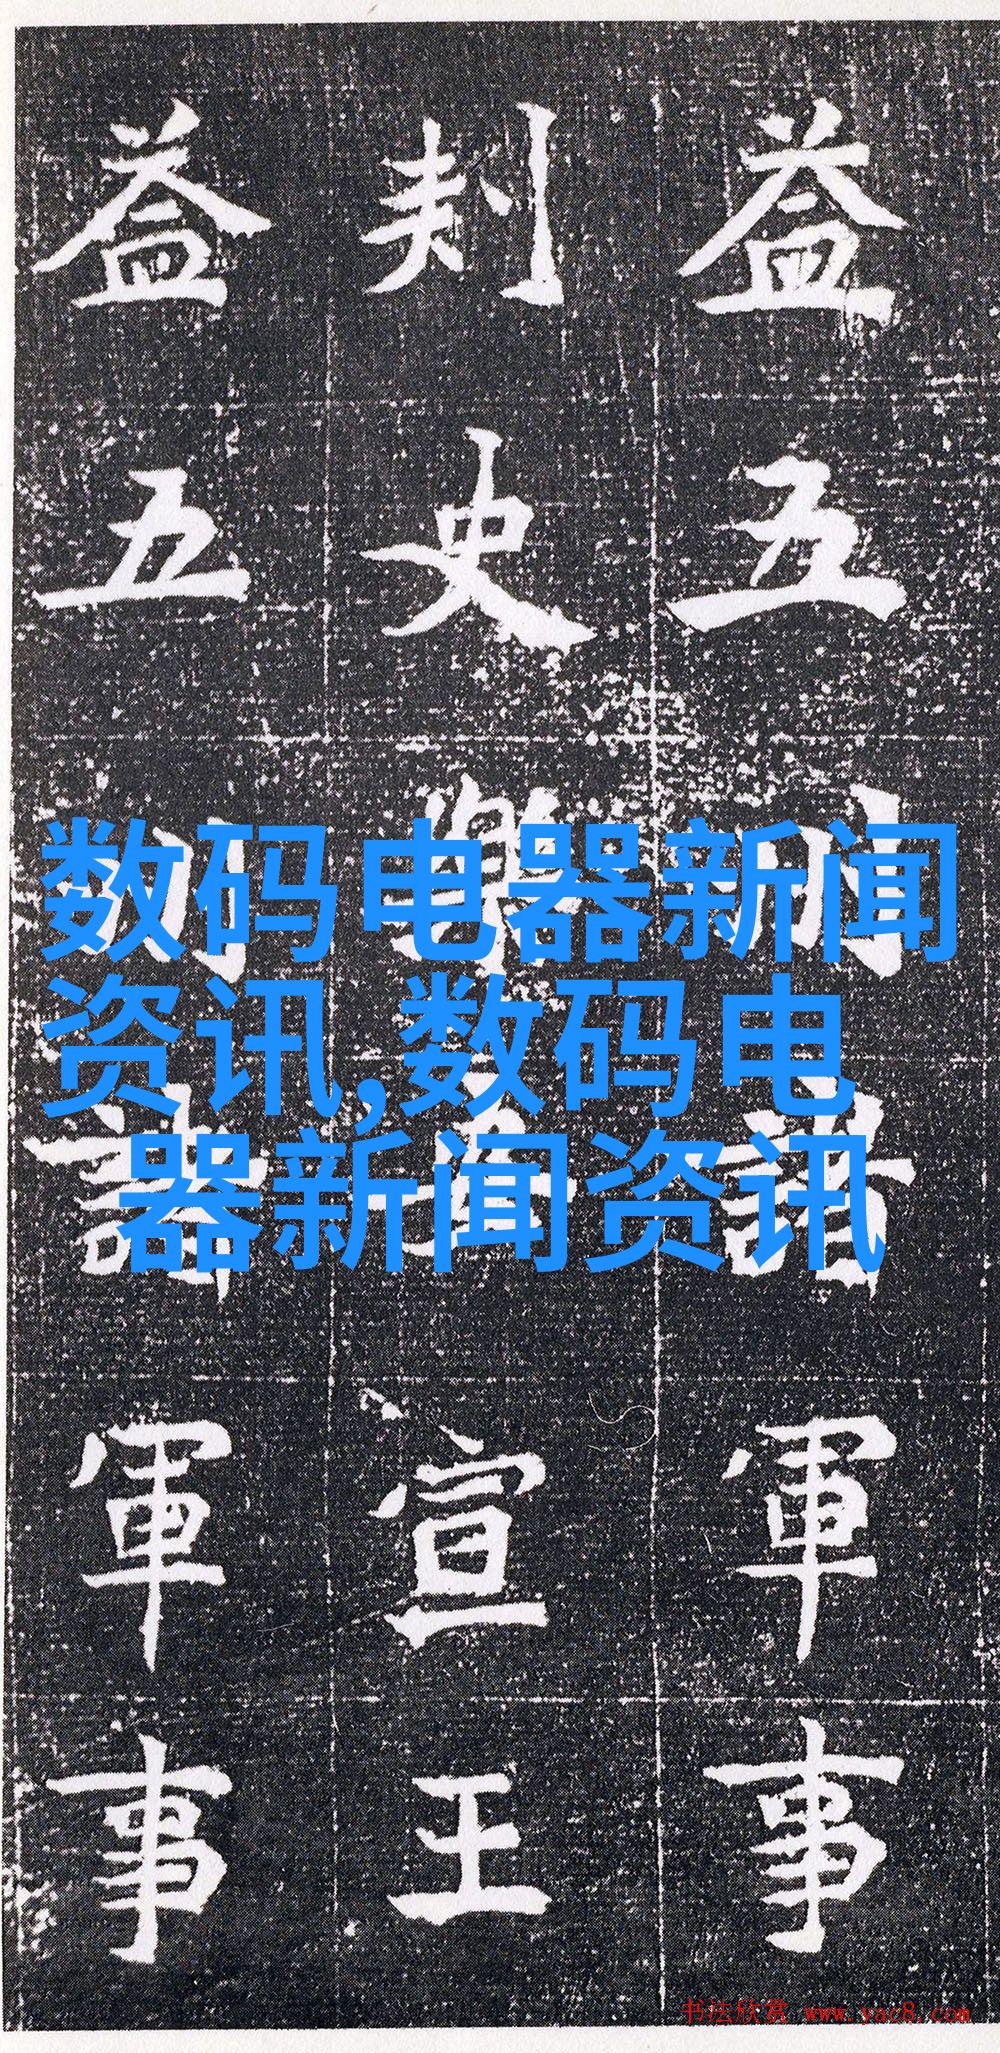 益五州諸軍事
刾史樂宣王
益五州諸軍事
数码电器新闻
资讯,数码电
器新闻资讯
书法欣赏 www.yac8.com